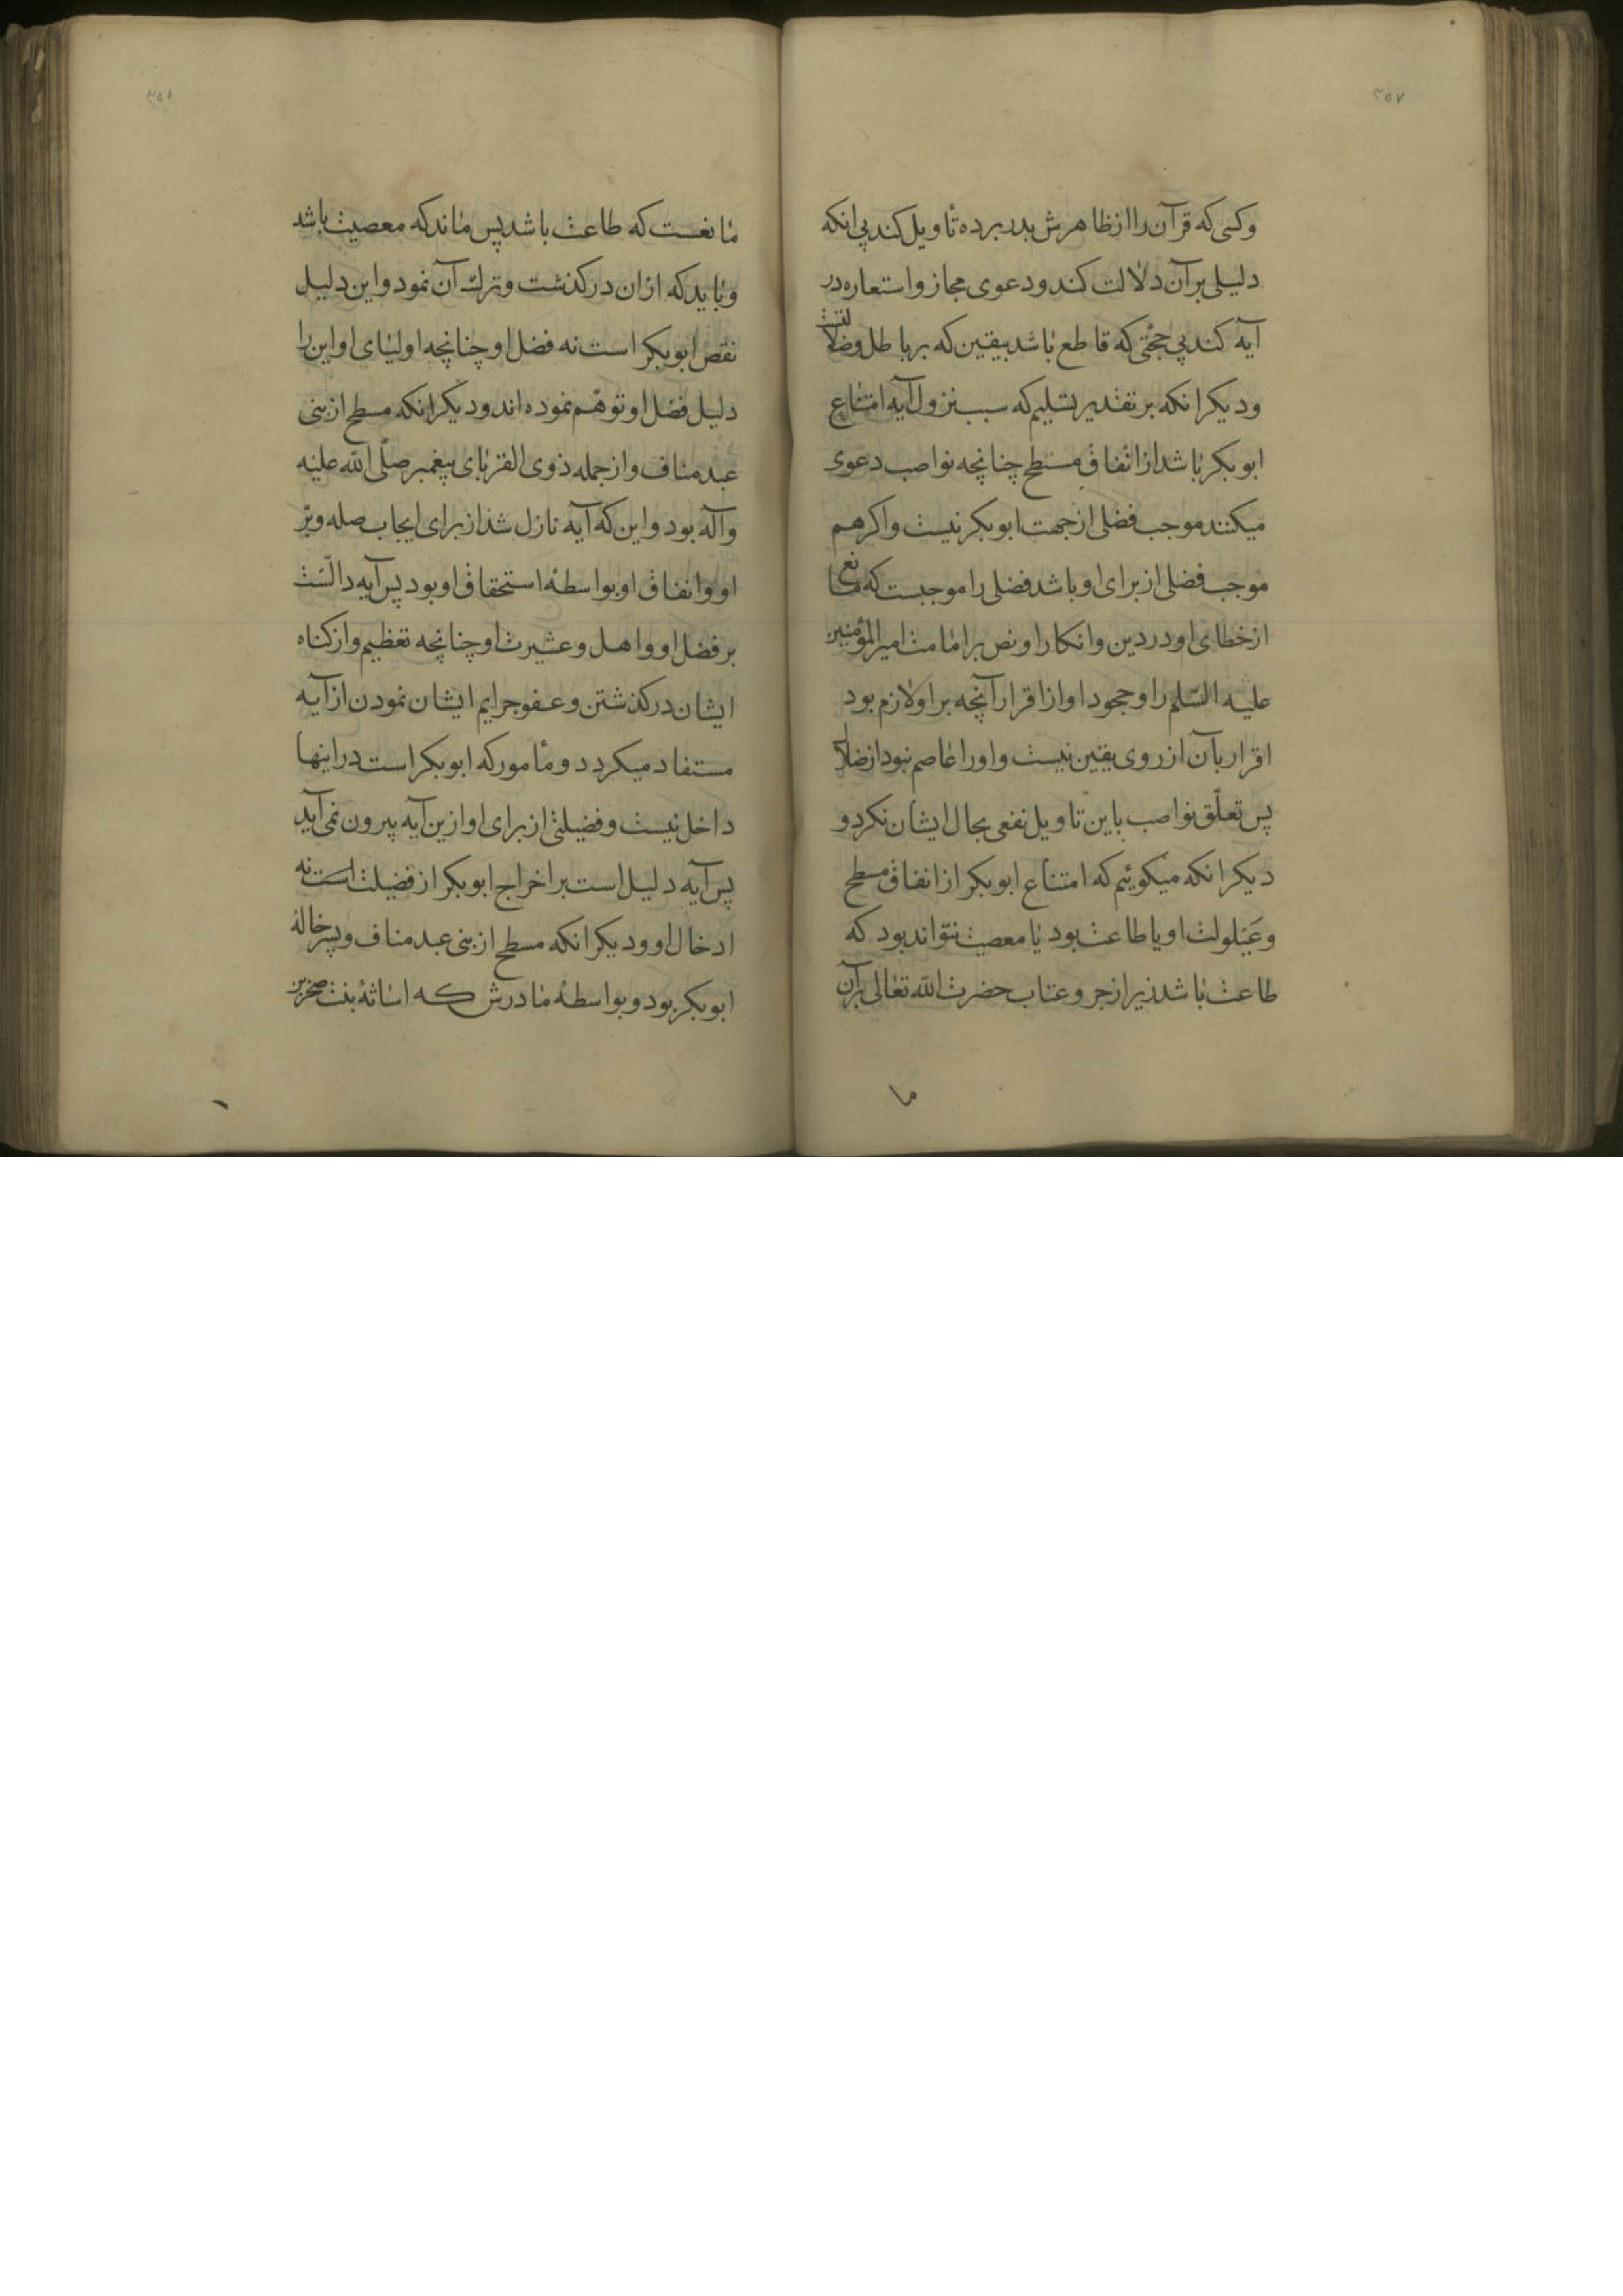 ۲۵۷
وکسی که قرآن را از ظاهرش بدر برده تأویل کند بی انکه
دلیلی بر آن دلالت کند و دعوی مجاز و استعاره در
آیه کند بی حجّتی که قاطع باشد بیقین که بر باطل و ضلالتست
و دیکر انکه بر تقدیر تسلیم که سبب نزول آیه امتناع
ابوبکر باشد از انفاق مسطح چنانچه نواصب دعوی
میکنند موجب فضلی از جهت ابوبکر نیست و اکر هم
موجب فضلی از برای او باشد فضلی را موجبست که مانع
از خطای او در دین و انکار او نص بر امامت امیرالمؤمنین
علیه السّلم را و جحود او از اقرار آنچه بر او لازم بود
اقرار بآن از روی یقین نیست و او را عاصم نبود از ضلال
پس تعلّق نواصب باین تاویل نفعی بحال ایشان نکرد و
دیکر انکه میکوئیم که امتناع ابوبکر از انفاق مسطح
و عیلولت او یا طاعت بود یا معصیت نتواند بود که
طاعت باشد زیرا زجر و عتاب حضرت الله تعالی بر آن
ما
۲۵۸
مانعست که طاعت باشد پس ماند که معصیت باشد
و باید که ازان در کذشت و ترك آن نمود و این دلیل
نقص ابوبکر است نه فضل او چنانچه اولیای او این را
دلیل فضل او توهّم نموده اند و دیکر انکه مسطح از بنی
عبد مناف و از جمله ذوی القربای پیغمبر صلّی الله علیه
وآله بود و این که آیه نازل شد از برای ایجاب صله و برّ
او و انفاق او بواسطهٔ استحقاق او بود پس آیه دالّست
بر فضل او و اهل و عشیرت او چنانچه تعظیم و از کناه
ایشان در کذشتن و عفو جرایم ایشان نمودن از آیه
مستفاد میکردد و مأمور که ابوبکر است در اینها
داخل نیست و فضیلتی از برای او ازین آیه بیرون نمی آید
پس آیه دلیل است بر اخراج ابوبکر از فضیلت است نه
ادخال او و دیکر انکه مسطح از بنی عبد مناف و پسر خالهٔ
ابوبکر بود و بواسطهٔ مادرش که اثاثهٔ بنت صخر بن